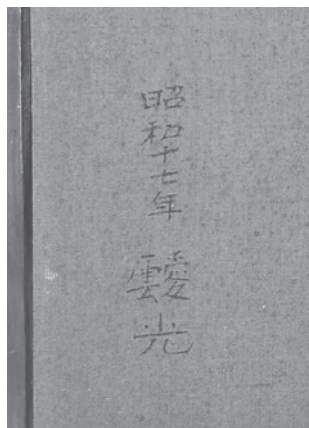 昭和十七年
靉光